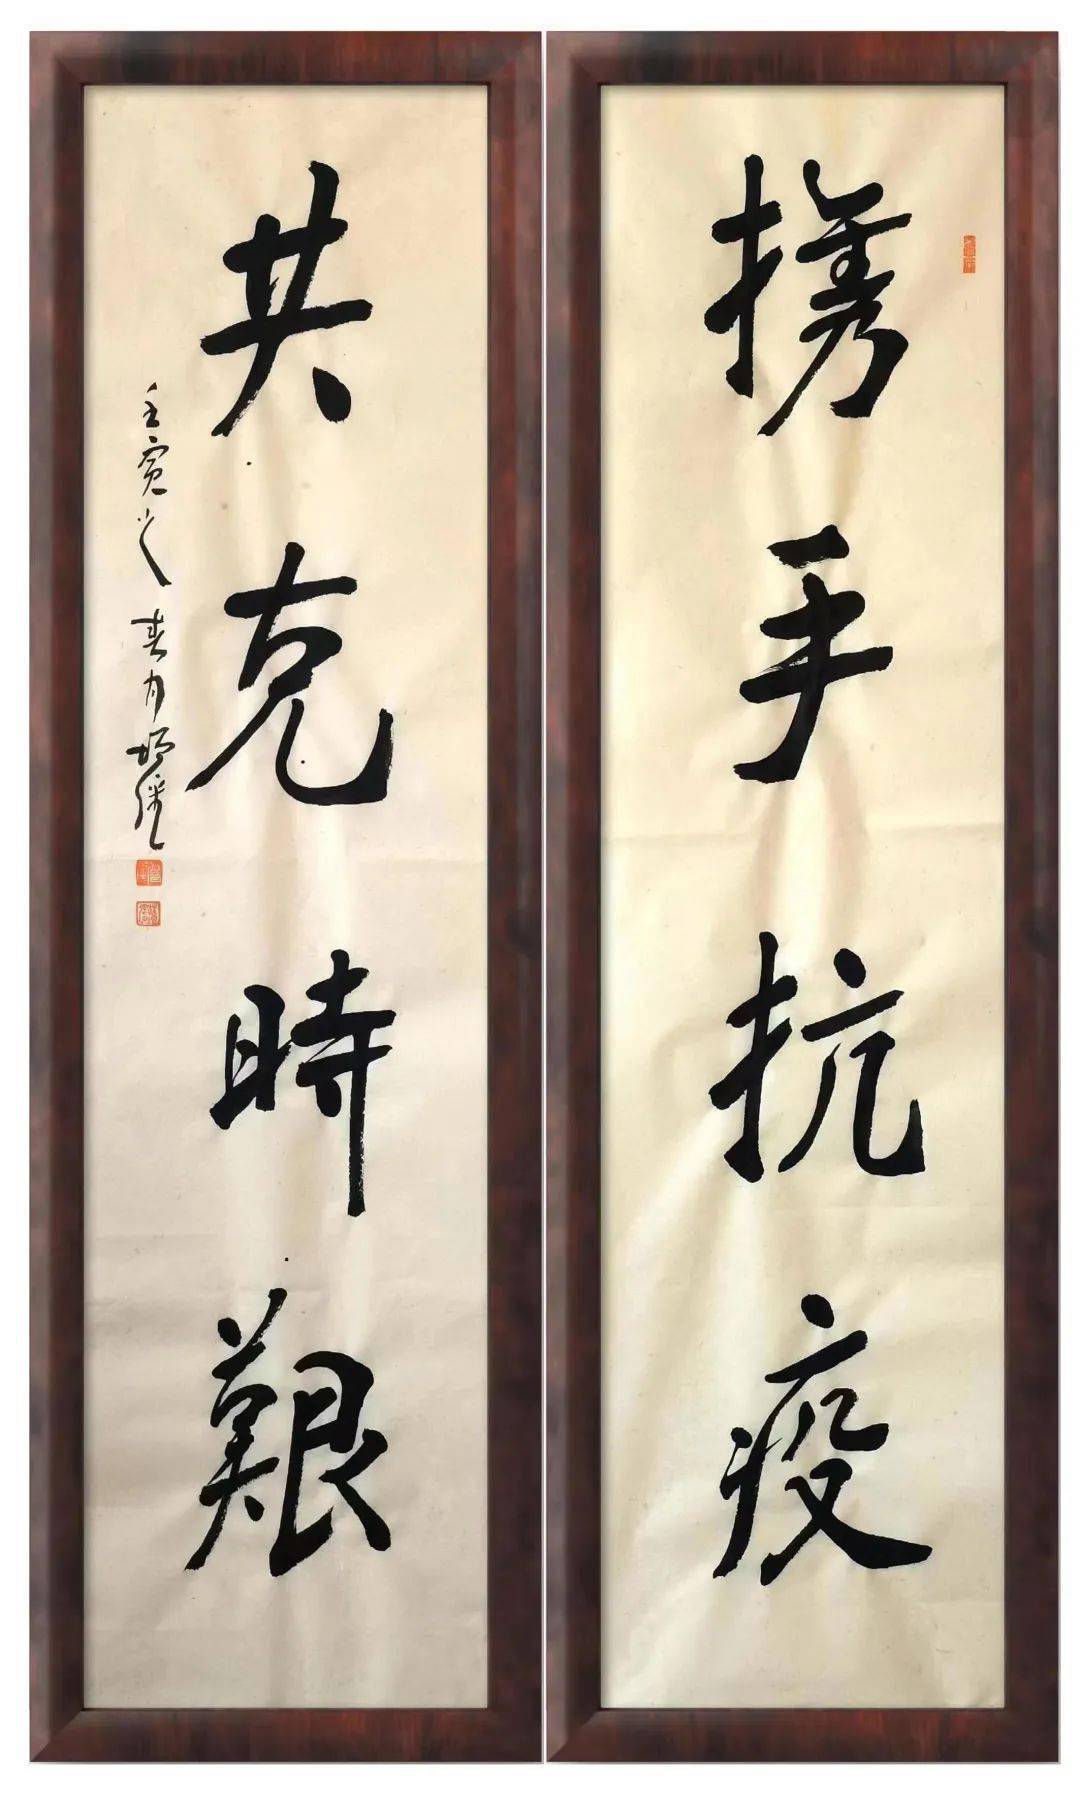 携手抗疫
共克時艱
壬寅之春月